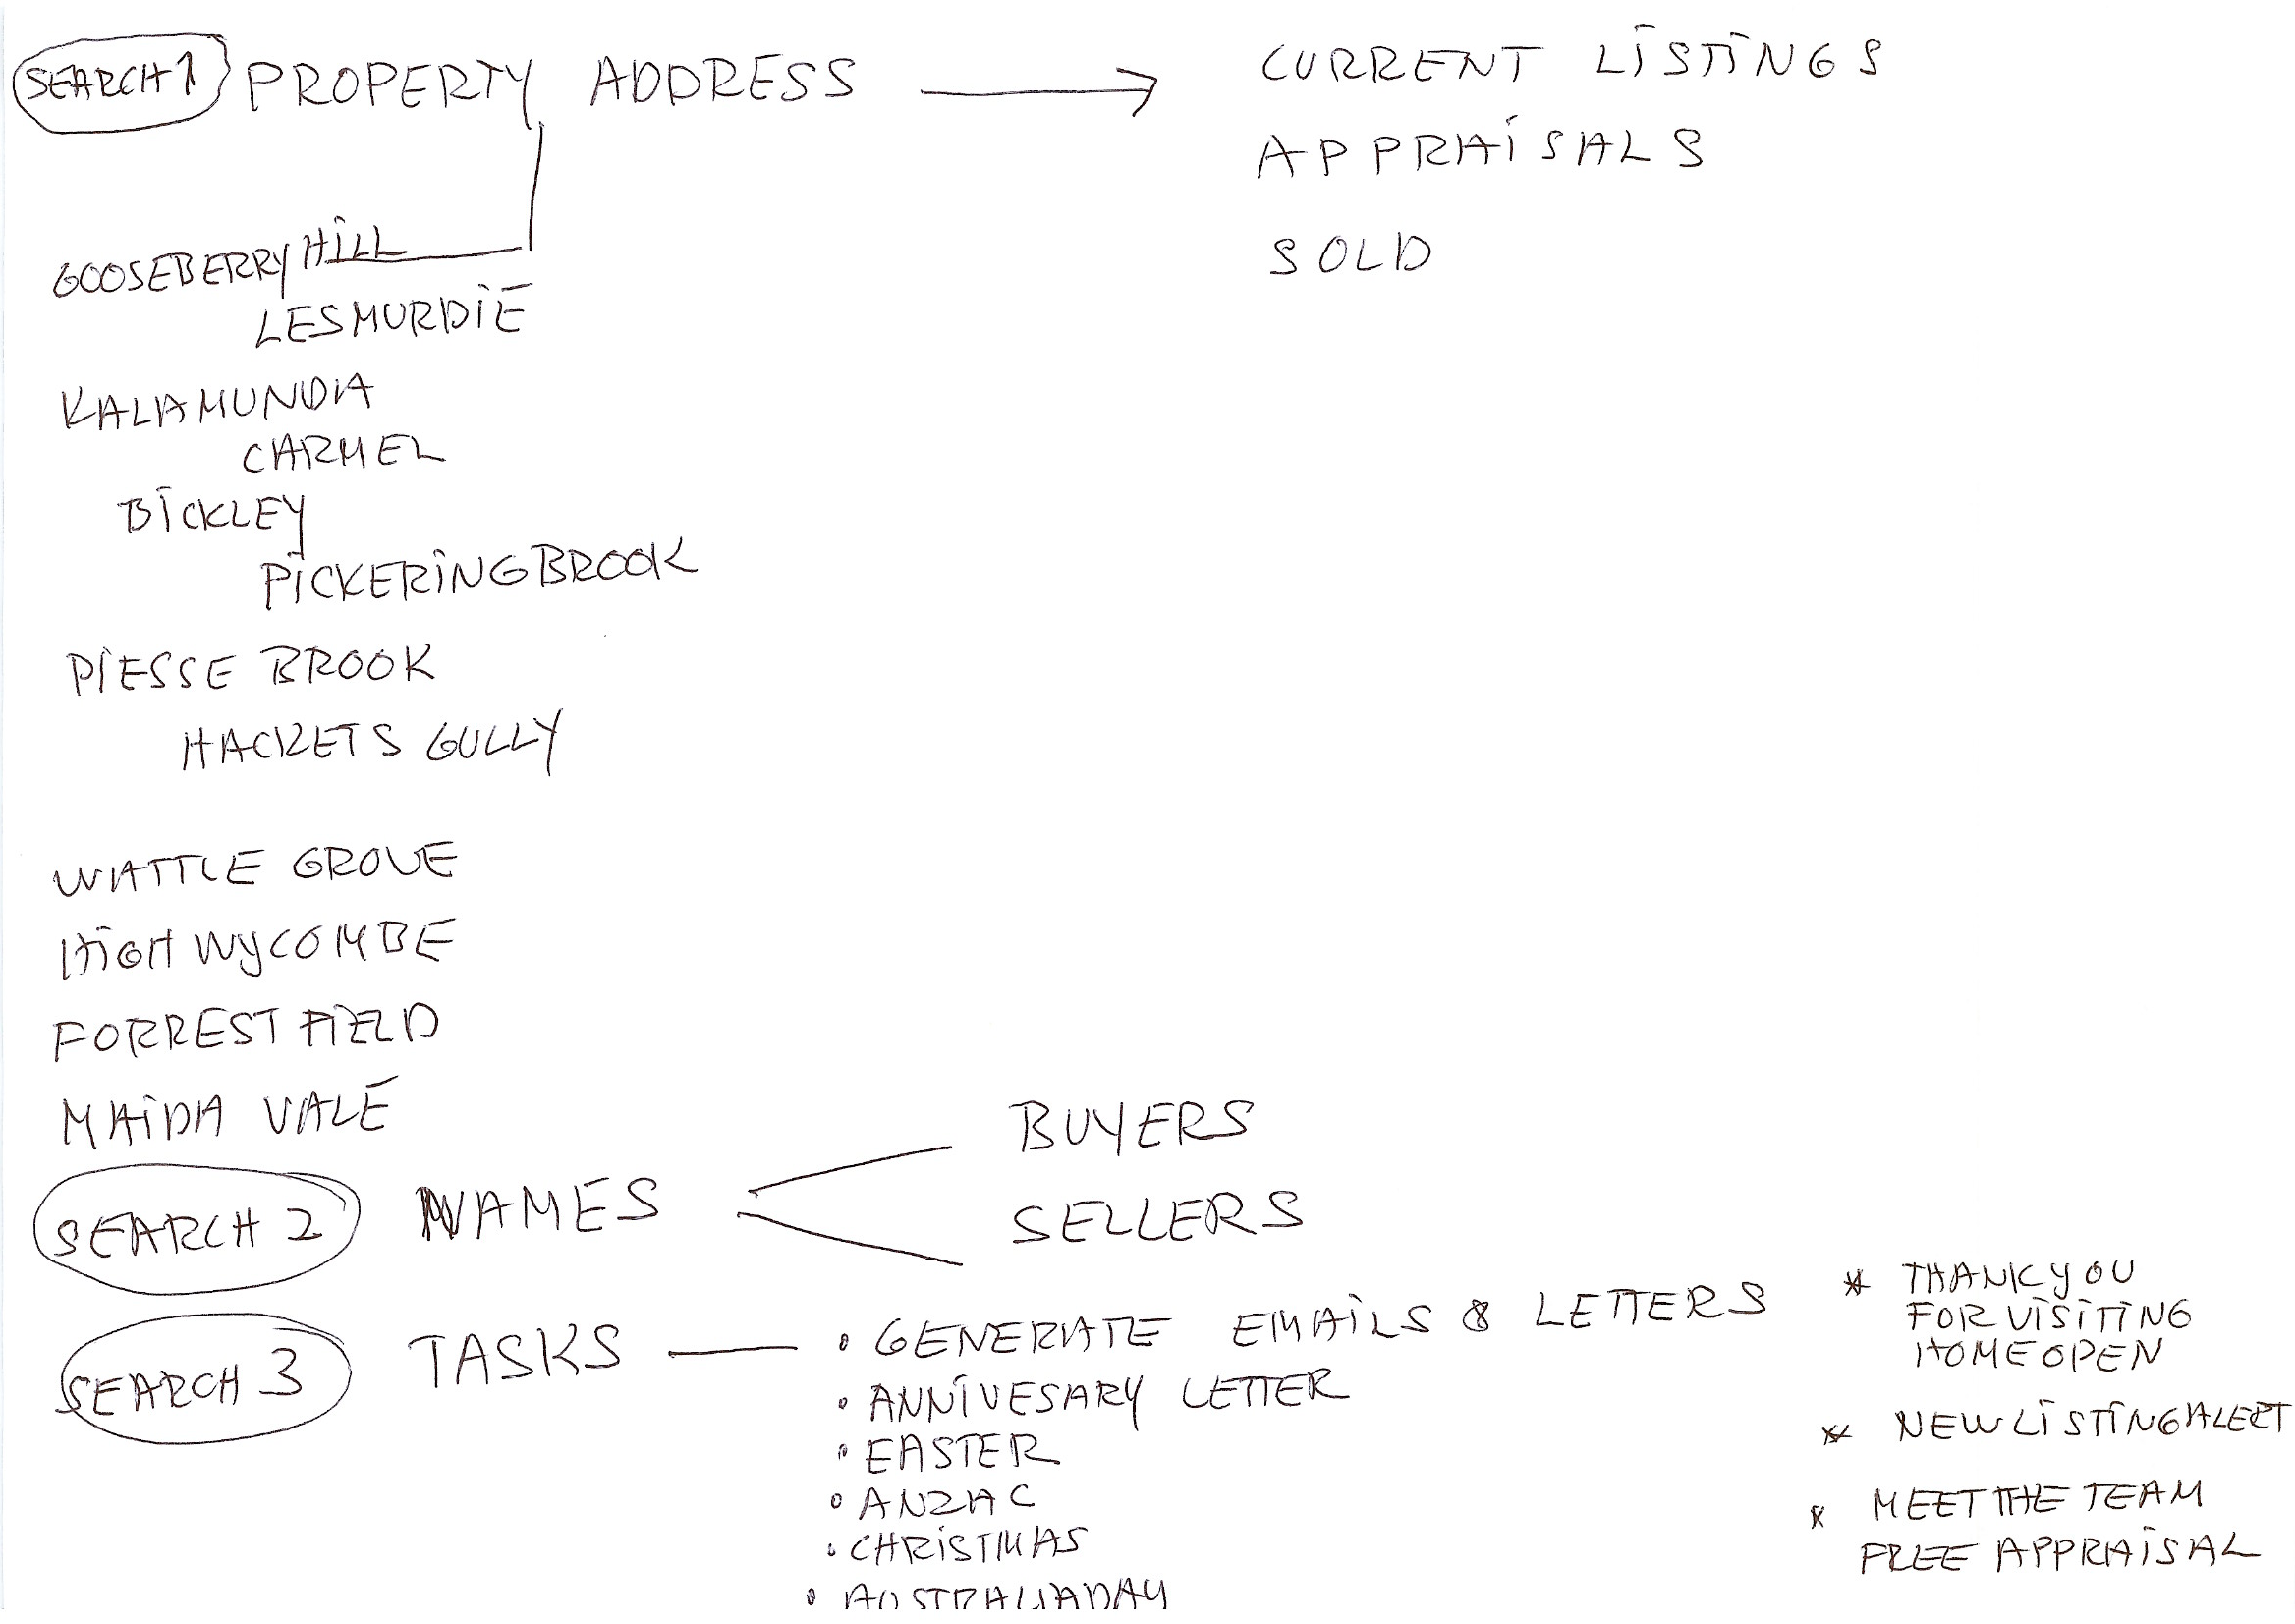 SEARCH 1 PROPERTY ADDRESS
CURRENT LISTINGS
APPRAISALS
SOLD
GOOSEBERRY HILL
LESMURDIE
KALAMUNDA
CARMEL
BICKLEY
PICKERING BROOK
PIESSE BROOK
HACKETS GULLY
WATTLE GROVE
HIGH WYCOMBE
FORRESTFIELD
MAIDA VALE
SEARCH 2 NAMES
BUYERS
SELLERS
SEARCH 3 TASKS
• GENERATE EMAILS & LETTERS
• ANNIVESARY LETTER
• EASTER
• ANZAC
• CHRISTMAS
• AUSTRALIA DAY
* THANK YOU
FOR VISITING
HOME OPEN
* NEW LISTING ALERT
* MEET THE TEAM
FREE APPRAISAL